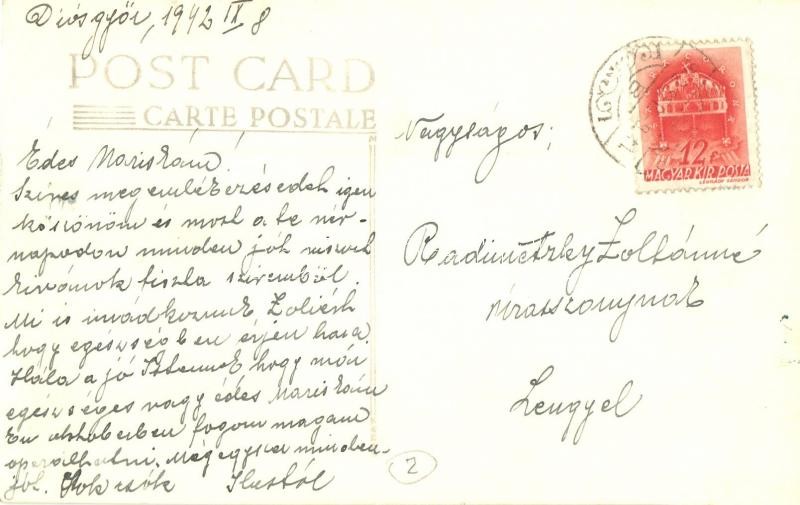 Diósgyőr, 1942 IX 8
POST CARD
CARTE POSTALE
Édes Mariskám!
Szíves megemlékezésedet igen
köszönöm és most a te név-
napodon minden jót viszont
kívánok tiszta szívemből.
Mi is imádkozunk Zoliért
hogy egészségben érjen haza.
Hála a jó Istennek hogy már
egészséges vagy édes Mariskám
Én októberben fogom magam
operáltatni. Mégegyszer minden-
jót. Sok csók Ilustól
Nagyságos;
Radimetzky Zoltánné
úrasszonynak
Lengyel
2
12 f
MAGYAR KIR. POSTA